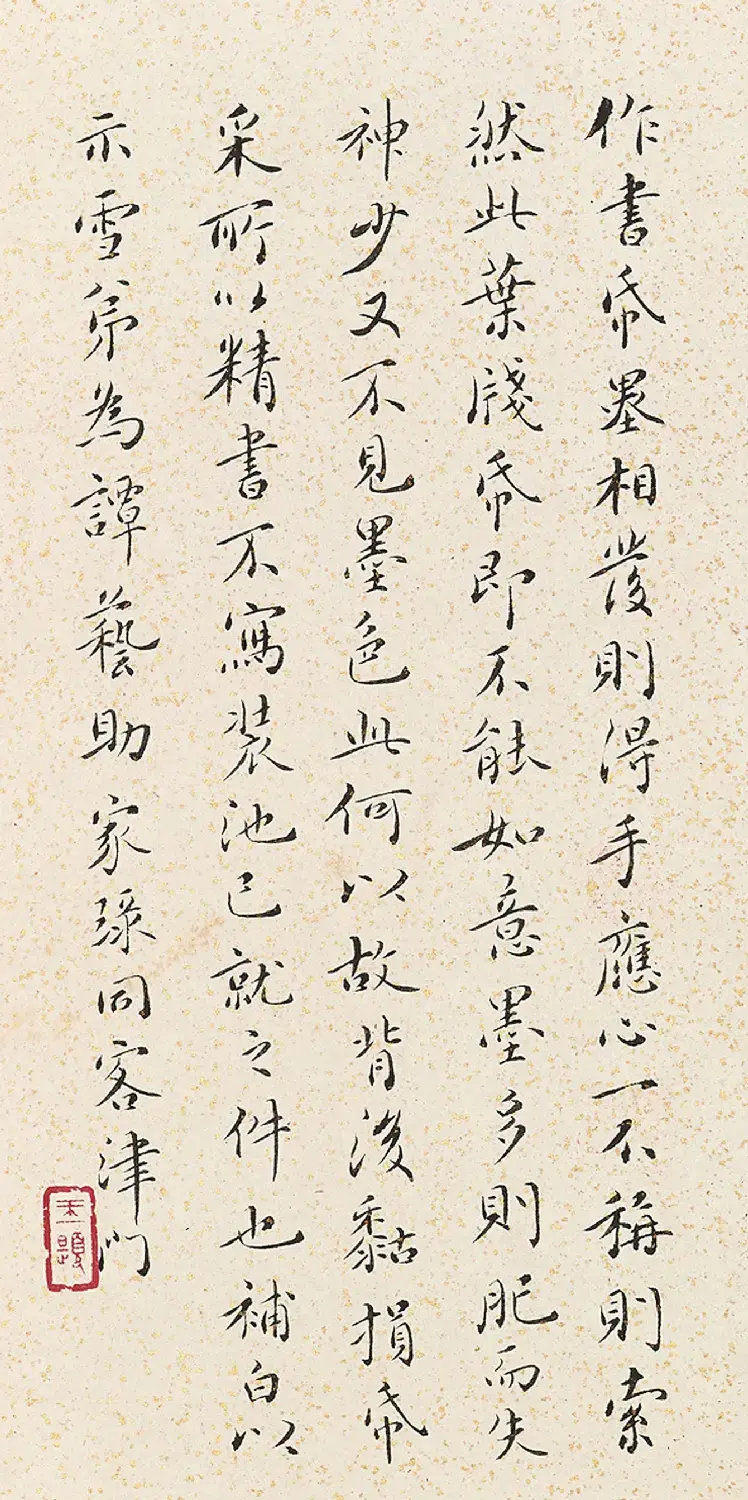 作書帋墨相發則得手應心一不稱則索
然此葉牋帋即不能如意墨多則肥而失
神少又不見墨色此何以故背後黏損帋
采所以精書不寫裝池已就之件也補白以
示雪弟為譚藝助家琭同客津門